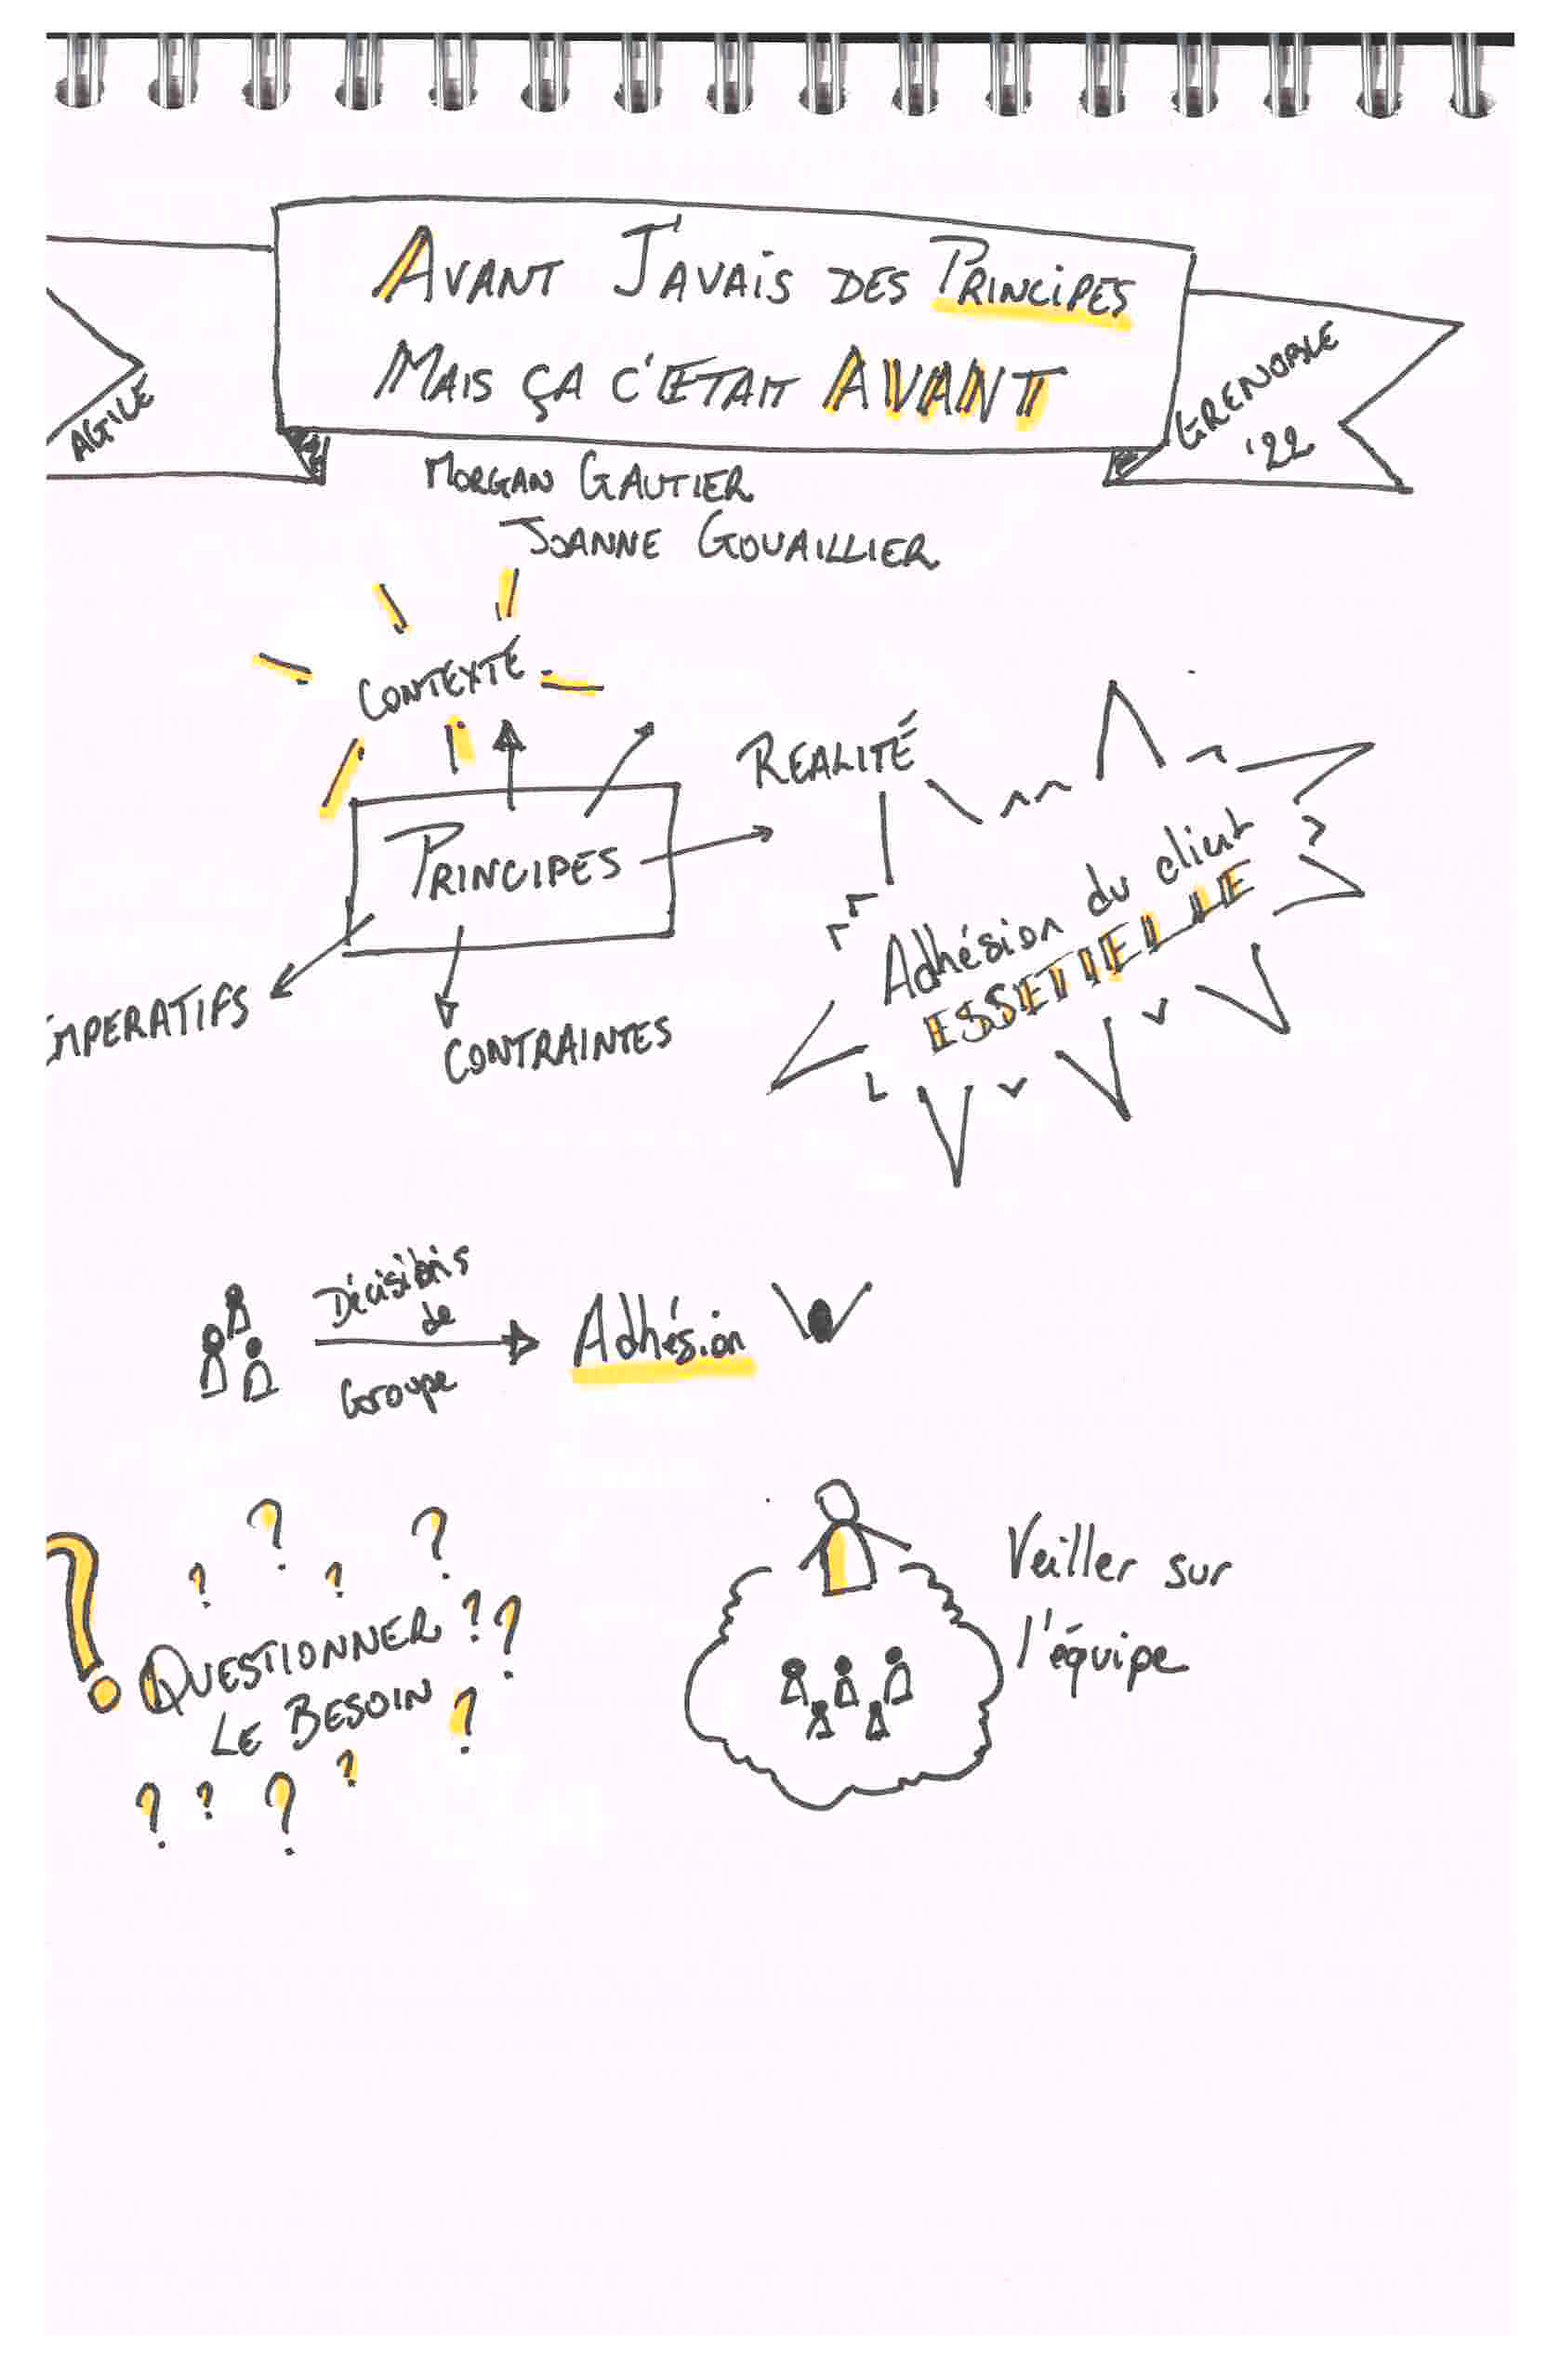 AVANT J'AVAIS DES PRINCIPES
MAIS ÇA C'ETAIT AVANT
AGILE
GRENOBLE
'22
MORGAN GAUTIER
JOANNE GOUAILLIER
CONTEXTE
REALITÉ
PRINCIPES
IMPERATIFS
CONTRAINTES
Adhésion du client
ESSETIELLE
Décisions
de
Groupe
Adhésion
? ? ? ?
QUESTIONNER ? ?
LE BESOIN ?
? ? ? ?
?
Veiller sur
l'équipe